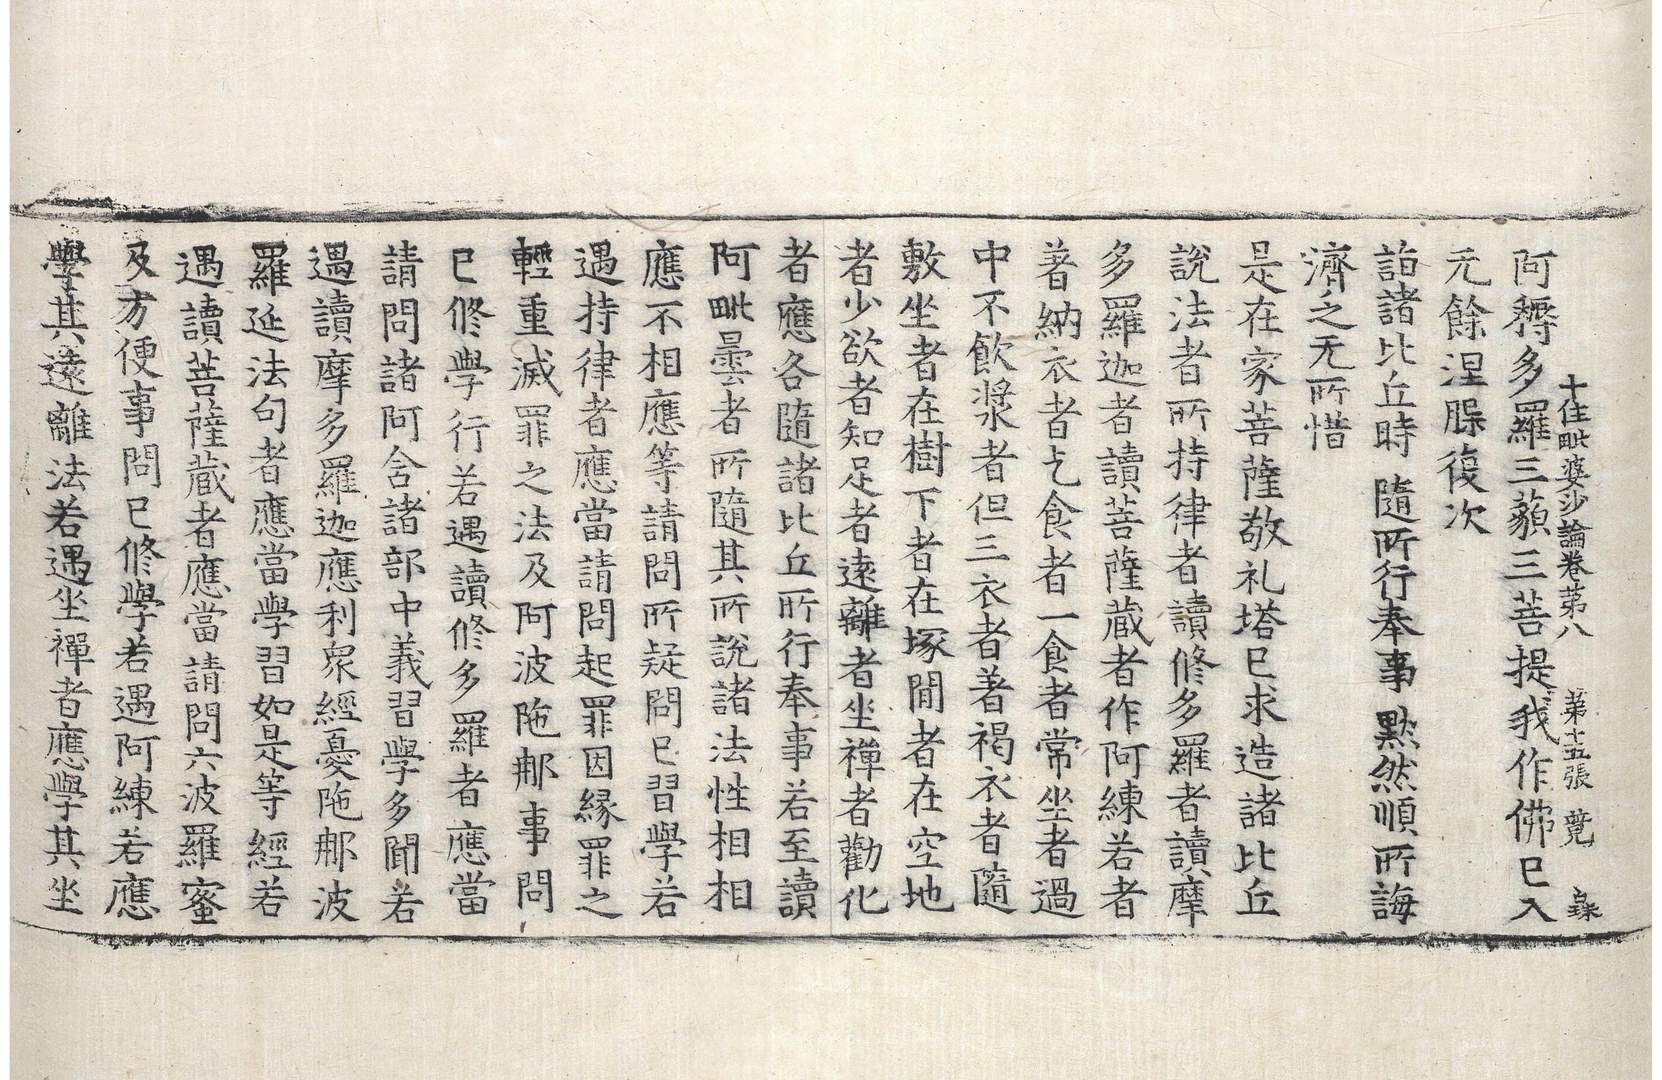 十住毗婆沙論卷第八 第十五張 竟
阿耨多羅三藐三菩提我作佛已入
无餘涅槃復次
詣諸比丘時 隨所行奉事 默然順所誨
濟之无所惜
是在家菩薩敬礼塔已求造諸比丘
說法者所持律者讀修多羅者讀摩
多羅迦者讀菩薩藏者作阿練若者
著納衣者乞食者一食者常坐者過
中不飲漿者但三衣者著褐衣者隨
敷坐者在樹下者在塚間者在空地
者少欲者知足者遠離者坐禪者勸化
者應各隨諸比丘所行奉事若至讀
阿毗曇者所隨其所說諸法性相相
應不相應等請問所疑問已習學若
遇持律者應當請問起罪因緣罪之
輕重滅罪之法及阿波陁那事問
已修學行若遇讀修多羅者應當
請問諸阿含諸部中義習學多聞若
遇讀摩多羅迦應利眾經憂陁那波
羅延法句者應當學習如是等經若
遇讀菩薩藏者應當請問六波羅蜜
及方便事問已修學若遇阿練若應
學其遠離法若遇坐禪者應學其坐